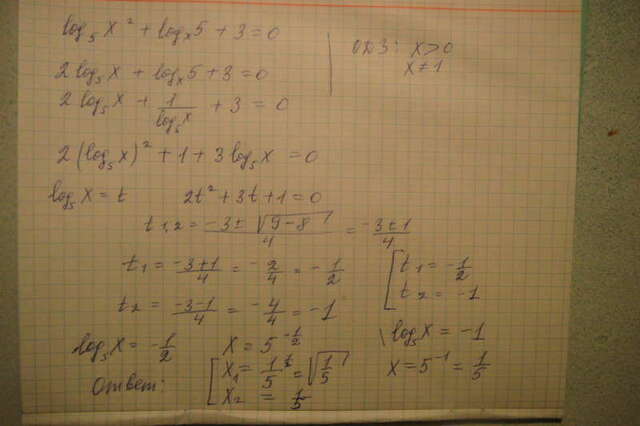 log₅ x² + logₓ 5 + 3 = 0
ОДЗ: x > 0
x ≠ 1
2 log₅ x + logₓ 5 + 3 = 0
2 log₅ x + 1/log₅ x + 3 = 0
2 (log₅ x)² + 1 + 3 log₅ x = 0
log₅ x = t 2t² + 3t + 1 = 0
t₁,₂ = (-3 ± √(9-8))/4 = (-3 ± 1)/4
t₁ = (-3+1)/4 = -2/4 = -1/2
t₂ = (-3-1)/4 = -4/4 = -1
[ t₁ = -1/2
t₂ = -1
log₅ x = -1/2 x = 5^(-1/2)
log₅ x = -1
x = 5⁻¹ = 1/5
Ответ: [ x₁ = 1/5^(1/2) = √(1/5)
x₂ = 1/5